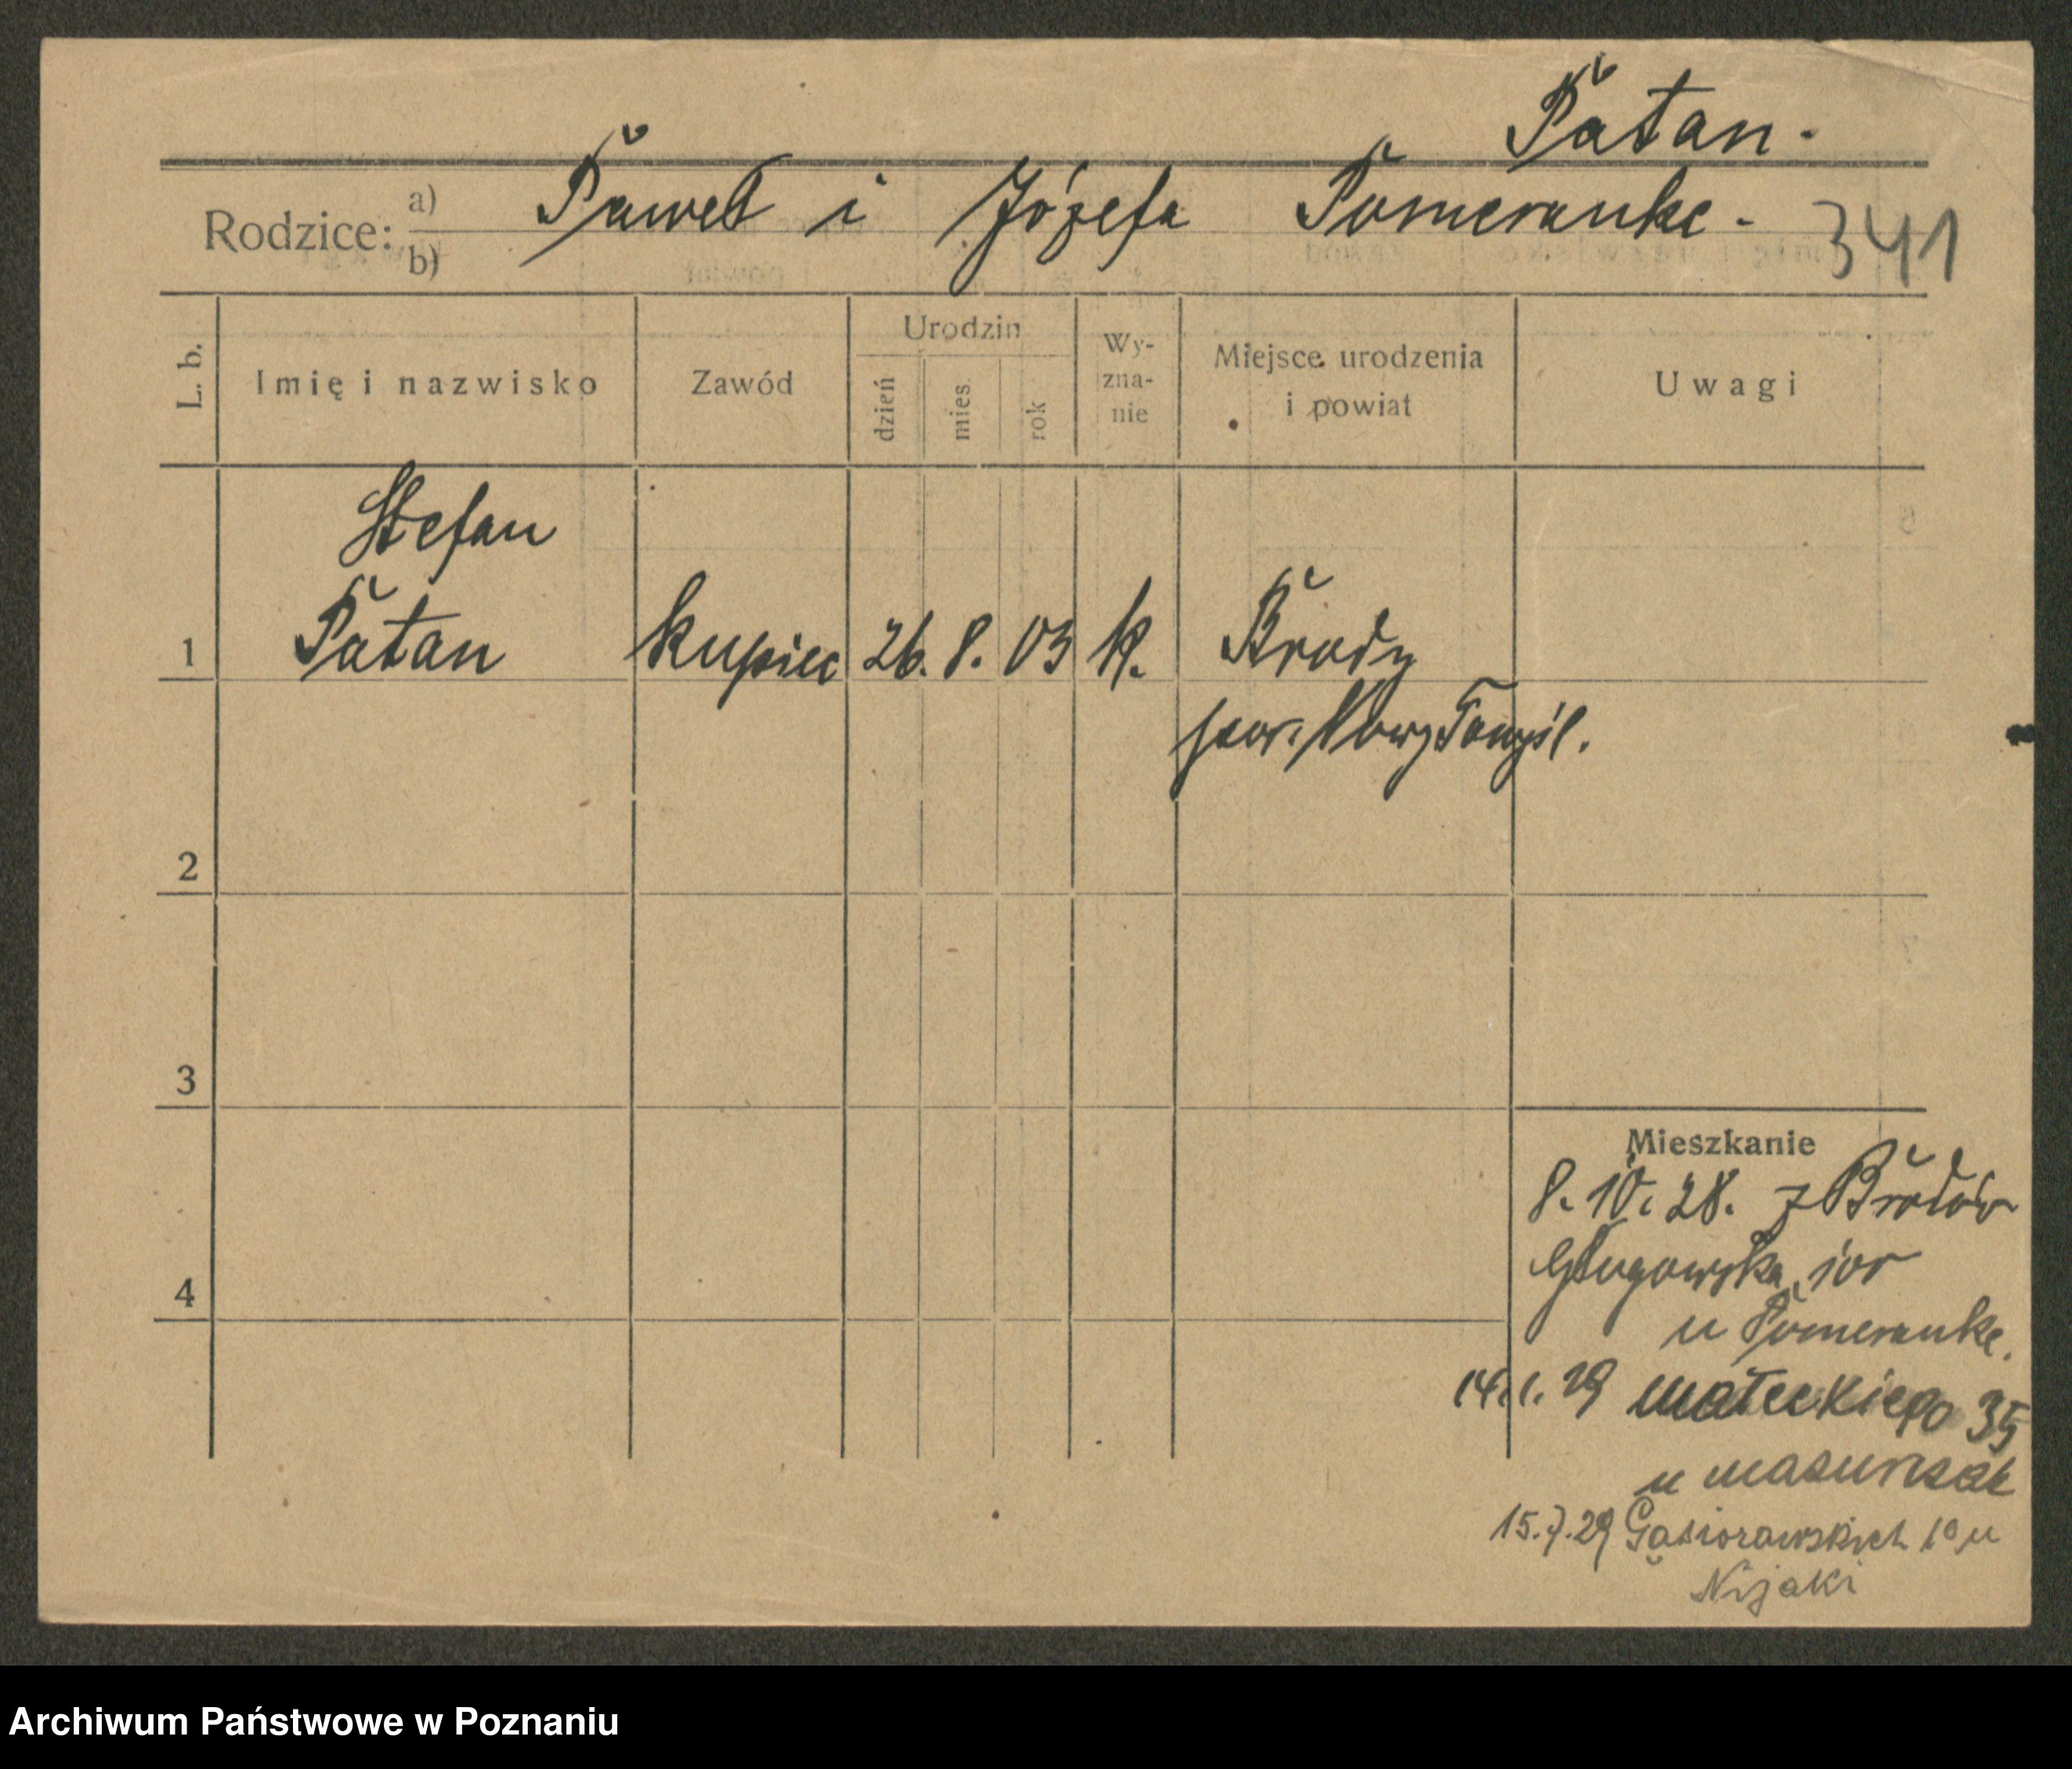 Patan.
Rodzice: a) Paweł i Józefa Pomeranke.
b)
341
L. b. Imię i nazwisko Zawód Urodzin dzień mies. rok Wy-zna-nie Miejsce urodzenia i powiat Uwagi
Stefan
1 Patan kupiec 26. 8. 03 K. Brody
pow. Nowy Tomyśl.
2
3
4
Mieszkanie
8. 10. 28. z Brodów
u Pomeranke.
14.1.29 Małeckiego 35
u
15.7.29 Gąsiorowskich 10 u
Nijaki
Archiwum Państwowe w Poznaniu